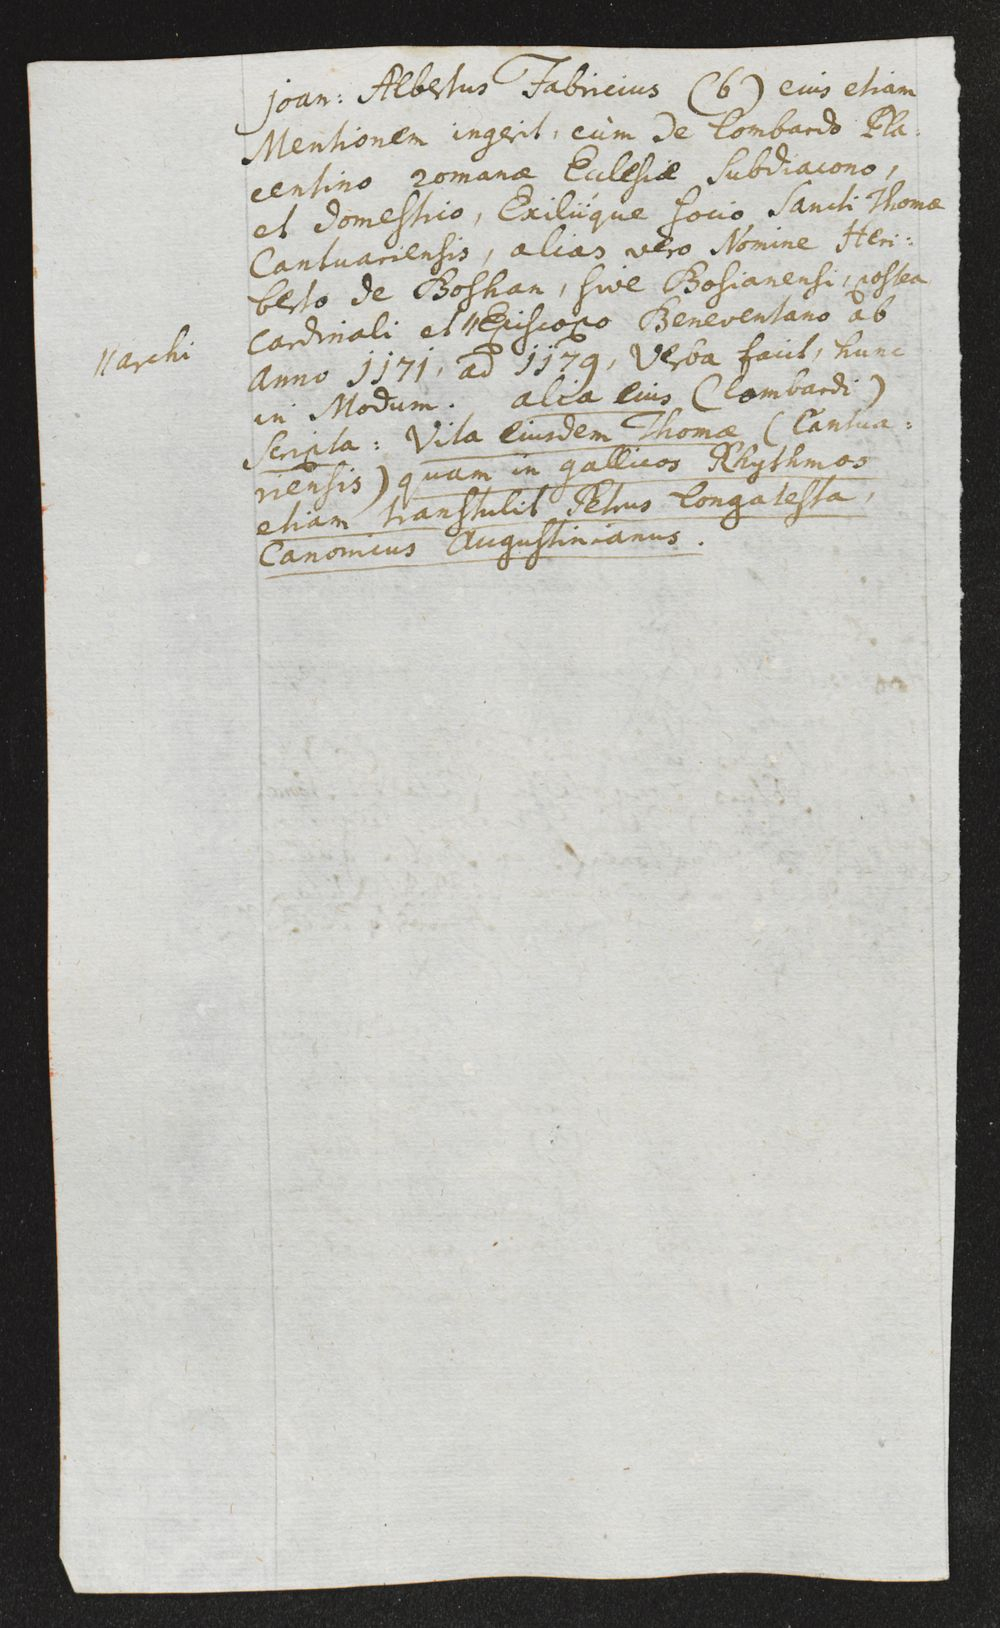 Joan: Albertus Fabricius (b) eius etiam
Mentionem ingerit, cùm de Lombardo Pla:
centino romanæ Ecclesiæ Subdiacono,
et domestico, Exiliique socio Sancti Thomæ
Cantuariensis, alias vero Nomine Heri:
berto de Boshan, sive Bosianensi, postea
Cardinali et "Episcopo Beneventano ab
"archi
Anno 1171, ad 1179, Verba facit, hunc
in Modum. alia eius (Lombardi)
Scripta: Vita eiusdem Thomæ (Cantua:
riensis) quam in gallicos Rhythmos
etiam transtulit Petrus Longatesta,
Canonicus Augustinianus.